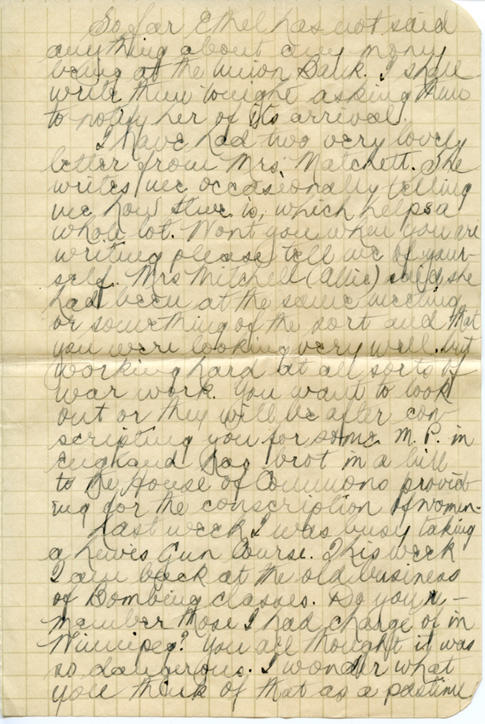 So far Ethel has not said
anything about any mony
being at the Union Bank. I shall
write them tonight asking them
to notify her of its arrival.
I have had two very lovely
letter from Mrs. Matchett. She
writes me occasionally telling
me how she is, which helps a
whole lot. Wont you when you are
writing please tell me of your-
self. Mrs Mitchell (Allie) said she
had been at the same meeting
or something of the sort and that
you were looking very well, but
working hard at all sorts of
war work. You want to look
out or they will be after con-
scripting you for some M.P. in
England has brot in a bill
to the House of Commons provid-
ing for the conscription of women.
Last week I was busy taking
a Lewis Gun Course. This week
I am back at the old business
of Bombing classes. Do you re-
member those I had charge of in
Winnipeg? You all thought it was
so dangerous. I wonder what
you think of that as a pastime